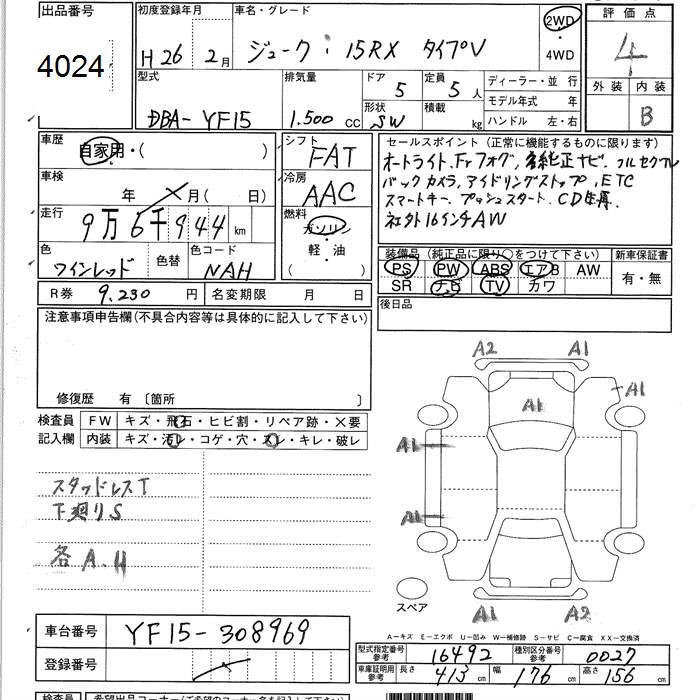 出品番号
4024
初度登録年月
H26年 2月
車名・グレード
ジューク 15RX タイプV
2WD
・
4WD
評価点
4
外装 内装
B
型式
DBA-YF15
排気量
1.500 cc
ドア
5
定員
5人
形状
SW
積載
kg
ディーラー・並行
モデル年式 年
ハンドル 左・右
車歴
自家用・( )
車検
年 月( 日)
走行
9万6千944km
色
ワインレッド
色替
色コード
NAH
シフト
FAT
冷房
AAC
燃料
ガソリン
軽・油
( )
セールスポイント(正常に機能するものに限ります)
オートライト、Frフォグ、純正ナビ、フルセグTV
バックカメラ、アイドリングストップ、ETC
スマートキー、プッシュスタート、CD生再
社外16インチAW
装備品(純正品に限り○をつけて下さい)
PS PW ABS エアB AW
SR ナビ TV カワ
新車保証書
有・無
R券 9.230円
名変期限 月 日
後日品
注意事項申告欄(不具合内容等は具体的に記入して下さい)
修復歴 有 〔箇所 〕
検査員
記入欄
FW キズ・飛石・ヒビ割・リペア跡・×要
内装 キズ・汚レ・コゲ・穴・スレ・キレ・破レ
スタッドレスT
下廻りS
各A.H
A2 A1
A1
A1
A1
A1
スペア
A1 A2
A-キズ E-エクボ U-凹み W-補修跡 S-サビ C-腐食 XX-交換済
車台番号 YF15-308969
登録番号
型式指定番号
参考
16492
種別区分番号
参考
0027
車庫証明用
参考
長さ 413cm
幅 176cm
高さ 156cm
検査員
希望出品コーナー(ご希望のコーナー名を記入下さい)